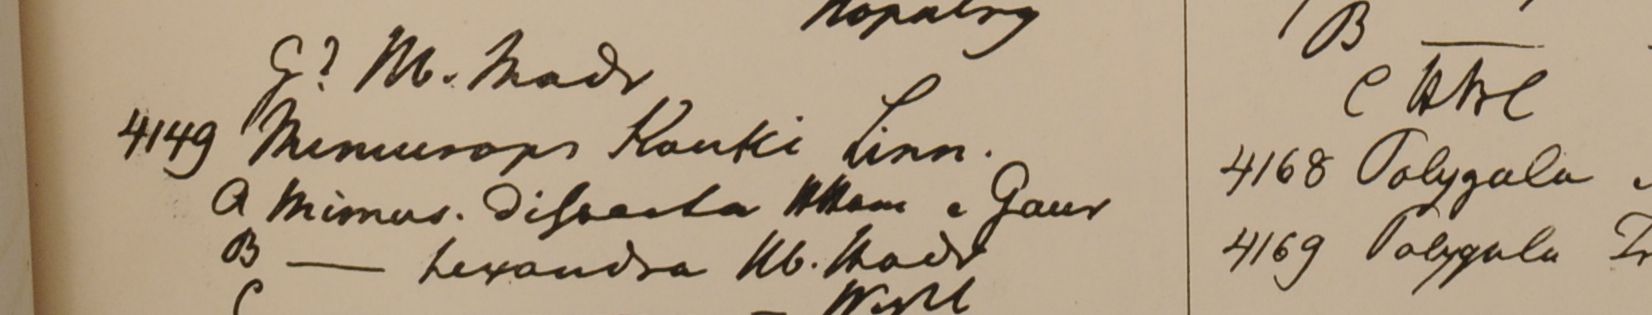 G? Hb. Madr
4149 Mimusops Kauki Linn.
A Mimus. dissecta HHam e Gaur
B — hexandra Hb. Madr
C — Wight
B —
C HBC
4168 Polygala
4169 Polygala